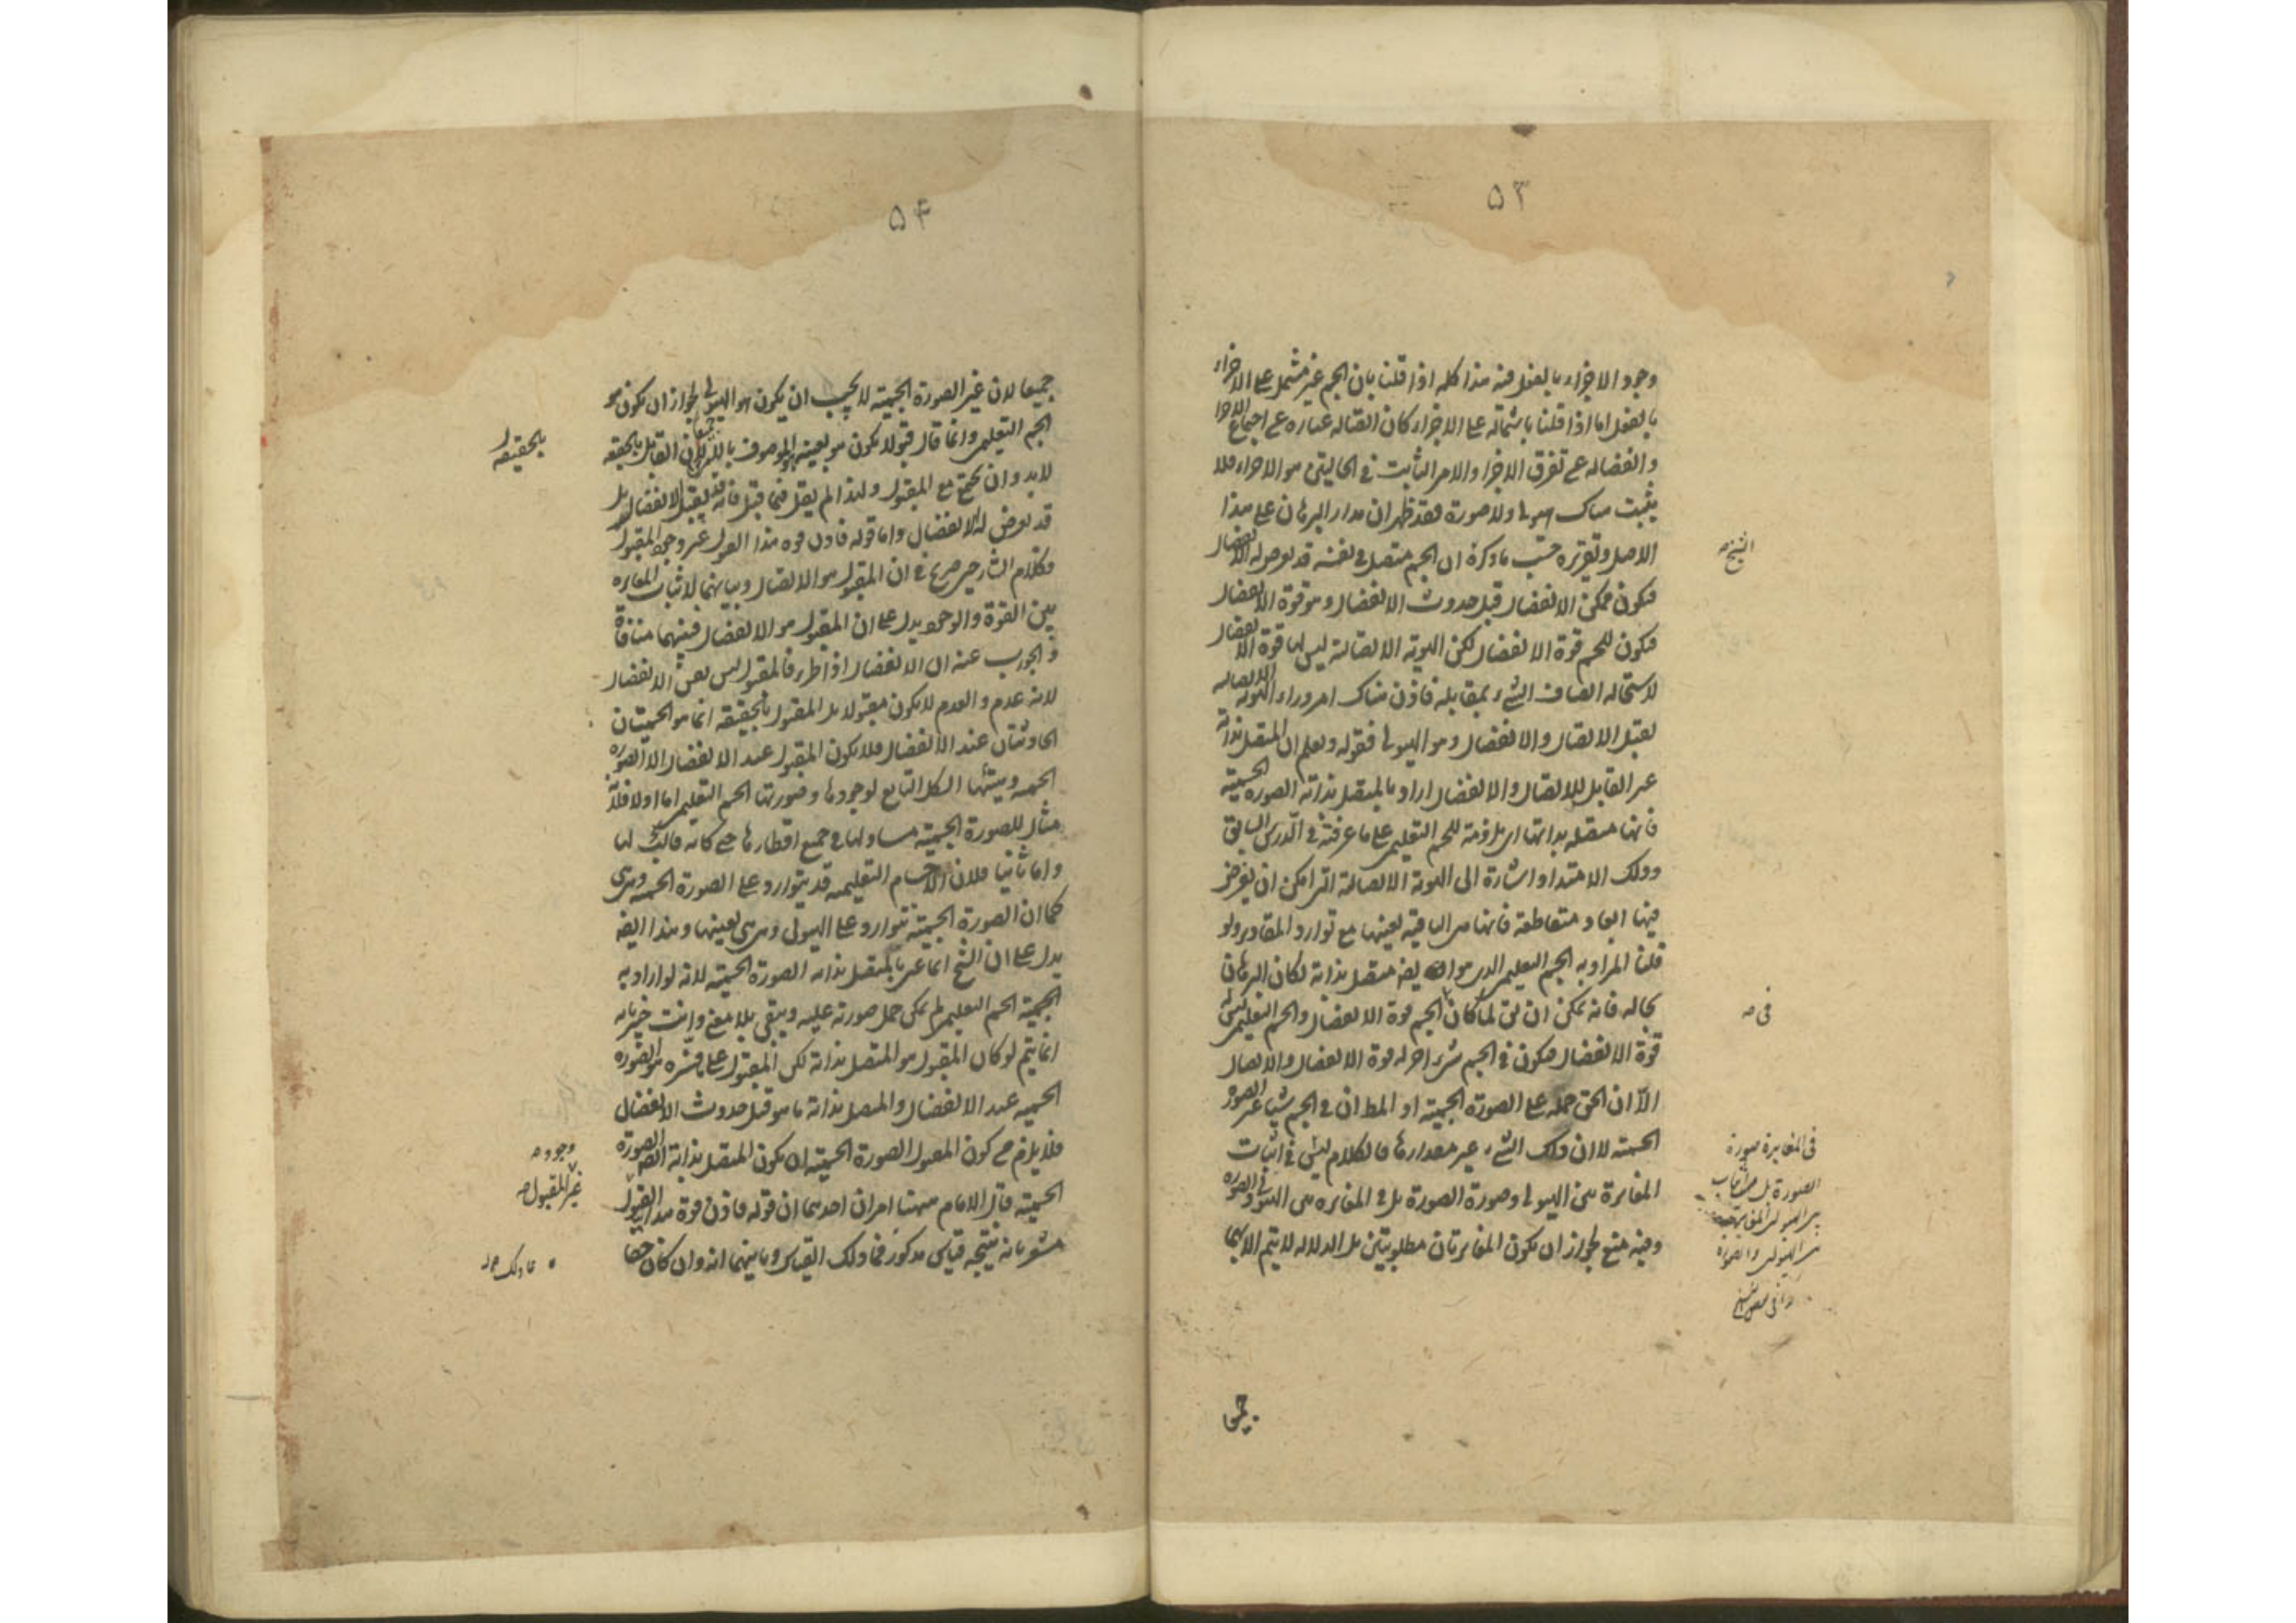 ٥٣
وجود الاجزاء بالفعل فيه هذا كله اذا قلنا بان الجسم غير مشتمل على الاجزاء
بالفعل اما اذا قلنا باشتماله على الاجزاء كان اتصاله عباره عن اجتماع الاجزا
وانفصاله عن تفرق الاجزا والامر الثابت فى الحاليتن هو الاجزاء فلا
يثبت هناك هيولى ولا صورة فقد ظهر ان مدار البرهان على هذا
الاصل وتقريره حسب ما ذكره ان الجسم متصل فى نفسه قد يعرض له الانفصال
فيكون ممكن الانفصال قبل حدوث الانفصال وهو قوة الانفصال
فيكون للجسم قوة الانفصال لكن الهوية الاتصالية ليس لها قوة الانفصال
لاستحالة اتصاف الشىء بمقابله فاذن هناك امر وراء الهوية الاتصاليه
يقبل الاتصال والانفصال وهو الهيولى فقوله ويعلم ان المتصل بذاته
غير القابل للاتصال والانفصال اراد بالمتصل بذاته الصورة الجسمية
فانها متصلة بذاتها اى ملزومة للجسم التعليمى على ما عرفته فى الدرس السابق
وذلك الامتداد اشارة الى الهوية الاتصالية التى امكن ان يفرض
فيها ابعاد متقاطعة فانها هى الباقية بعينها مع توارد المقادير ولو
قلنا المراد به الجسم التعليمى الذى هو ايضا متصل بذاته لكان البرهان
بحاله فانه يمكن ان يق لما كان للجسم قوة الانفصال والجسم التعليمى ليس له
قوة الانفصال فيكون فى الجسم شىء اخر له قوة الانفصال والاتصال
الا ان الحق حمله على الصورة الجسمية اذ المط ان فى الجسم شيئا غير الصورة
الجسمية لا ان ذلك الشىء غير مقدارها فالكلام ليس فى اثبات
المغايرة بين الهيولى وصورة الصورة بل فى المغايره بين الهيولى والصورة
وفيه منع لجواز ان يكون المغايرتان مطلوبتين بل الدلالة لا يتم الا بهما
الشيخ صه
فى صه
فى المغايرة صورة
الصورة بل
جميعا
٥٤
جميعا لان غير الصورة الجسمية لا يجب ان يكون هو الهيولى لجواز ان يكون هو
الجسم التعليمى وانما قال قبولا يكون هو بعينه الموصوف بالامرين جميعا لان القابل بالحقيقة
لابد وان يجتمع مع المقبول ولهذا لم يقل فيما قبل فانه قد يقبل الانفصال بل
قد يعرض له الانفصال واما قوله فاذن قوه هذا القبول غير وجود المقبول
فكلام الشارحين صريح فى ان المقبول هو الاتصال وبيانهما لاثبات المغايره
بين القوة والوجود يدل على ان المقبول هو الانفصال فبينهما منافاة
والجواب عنه ان الانفصال اذا طرء فالمقبول ليس نفس الانفصال
لانه عدم والعدم لا يكون مقبولا بل المقبول بالحقيقة انما هو الجسميتان
الحادثتان عند الانفصال فلا يكون المقبول عند الانفصال الا الصورة
الجسميه وهيئتها الشكل التابع لوجودها وصورتها الجسم التعليمى اما اولا فلانه
مثال للصورة الجسمية مساو لها فى جميع اقطارها حتى كانه قالب لها
واما ثانيا فلان الاجسام التعليمية قد يتوارد على الصورة الجسميه وهى هى
كما ان الصورة الجسمية تتوارد على الهيولى وهى هى بعينها وهذا ايضا
يدل على ان الشيخ انما عبر بالمتصل بذاته الصورة الجسمية لانه لو اراد به
الجسمية الجسم التعليمى لم يمكن حمل صورته عليه ويبقى بلا معنى وانت خبير بانه
انما يتم لو كان المقبول هو المتصل بذاته لكن المقبول على ما فسره هو الصورة
الجسميه عند الانفصال والمتصل بذاته ما هو قبل حدوث الانفصال
فلا يلزم من كون المقبول الصورة الجسمية ان يكون المتصل بذاته الصورة
الجسمية قال الامام ههنا امران احدهما ان قوله فاذن قوة هذا القبول
مشعر بانه نتيجة قياس مذكور فما ذلك القياس وثانيهما انه وان كان حقا
بالحقيقة
وجود صه
غير المقبول صه
فما ذلك